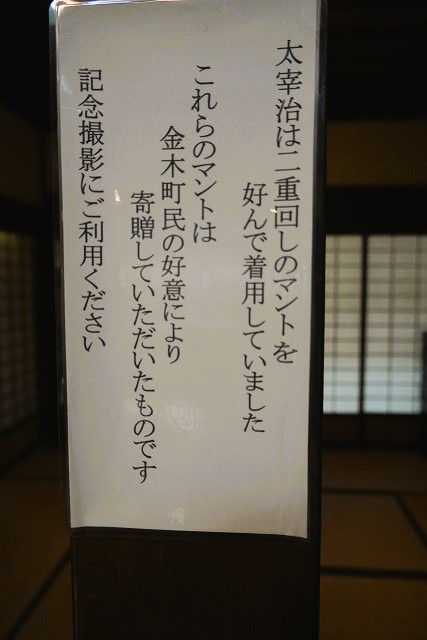 太宰治は二重回しのマントを
好んで着用していました
これらのマントは
金木町民の好意により
寄贈していただいたものです
記念撮影にご利用ください